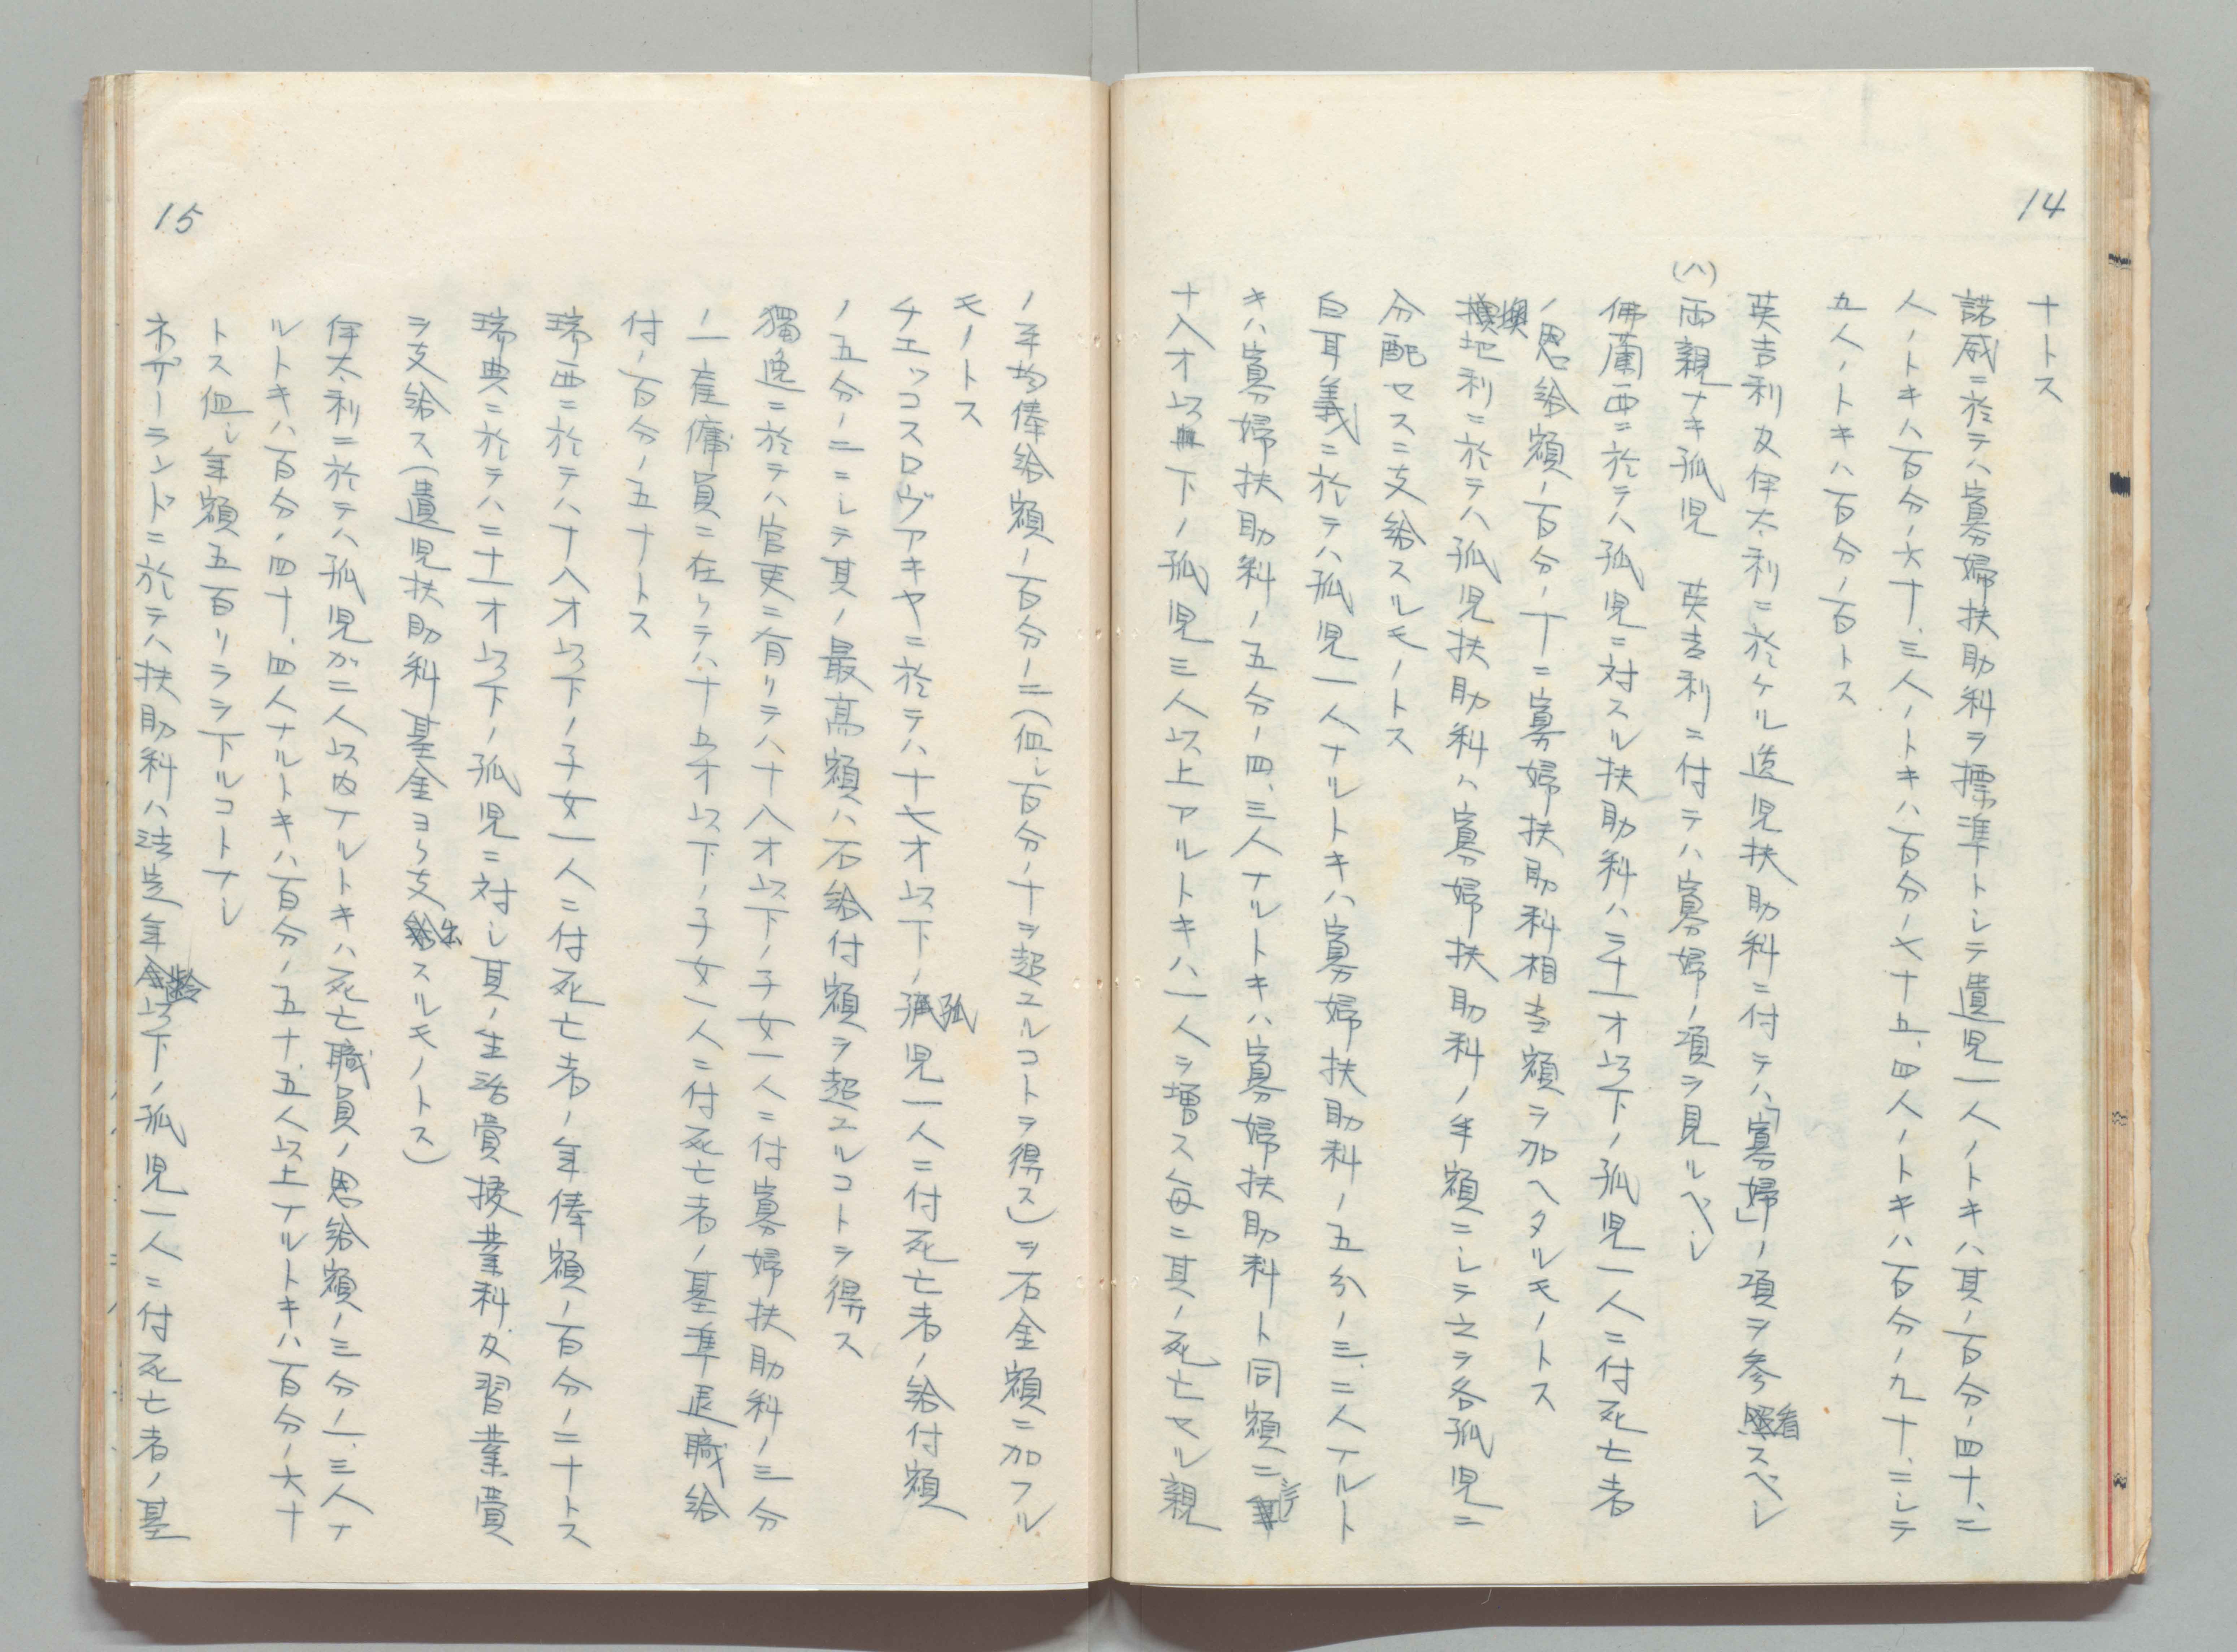 14
十トス
諾威ニ於テハ寡婦扶助料ヲ標準トシテ遺児一人ノトキハ其ノ百分ノ四十、二
人ノトキハ百分ノ六十、三人ノトキハ百分ノ七十五、四人ノトキハ百分ノ九十、ニシテ
五人ノトキハ百分ノ百トス
英吉利及伊太利ニ於ケル遺児扶助料ニ付テハ「寡婦」ノ項ヲ参看スベシ
(ハ)両親ナキ孤児 英吉利ニ付テハ寡婦ノ項ヲ見ルベシ
佛蘭西ニ於テハ孤児ニ対スル扶助料ハ二十一才以下ノ孤児一人ニ付死亡者
ノ恩給額ノ百分ノ十ニ寡婦扶助料相当額ヲ加ヘタルモノトス
墺地利ニ於テハ孤児扶助料ハ寡婦扶助料ノ半額ニシテ之ヲ各孤児ニ
分配セスニ支給スルモノトス
白耳義ニ於テハ孤児一人ナルトキハ寡婦扶助料ノ五分ノ三、二人ナルト
キハ寡婦扶助料ノ五分ノ四、三人ナルトキハ寡婦扶助料ト同額ニシテ
十八才以下ノ孤児三人以上アルトキハ一人ヲ増ス毎ニ其ノ死亡セル親
15
ノ平均俸給額ノ百分ノ二(但シ百分ノ十ヲ超ユルコトヲ得ス)ヲ右金額ニ加フル
モノトス
チエッコスロヴアキヤニ於テハ十七才以下ノ孤児一人ニ付死亡者ノ給付額
ノ五分ノ二ニシテ其ノ最高額ハ右給付額ヲ超ユルコトヲ得ス
獨逸ニ於テハ官吏ニ有リテハ十八才以下ノ子女一人ニ付寡婦扶助料ノ三分
ノ一雇傭員ニ在リテハ十五才以下ノ子女一人ニ付死亡者ノ基準退職給
付ノ百分ノ五十トス
瑞西ニ於テハ十八才以下ノ子女一人ニ付死亡者ノ年俸額ノ百分ノ二十トス
瑞典ニ於テハ二十一才以下ノ孤児ニ対シ其ノ生活費授業料及習業費
ヲ支給ス(遺児扶助料基金ヨリ支出スルモノトス)
伊太利ニ於テハ孤児カ二人以内ナルトキハ死亡職員ノ恩給額ノ三分ノ一、三人ナ
ルトキハ百分ノ四十、四人ナルトキハ百分ノ五十、五人以上ナルトキハ百分ノ六十
トス但シ年額五百リラヲ下ルコトナシ
ネザーランドニ於テハ扶助料ハ法定年齢以下ノ孤児一人ニ付死亡者ノ基